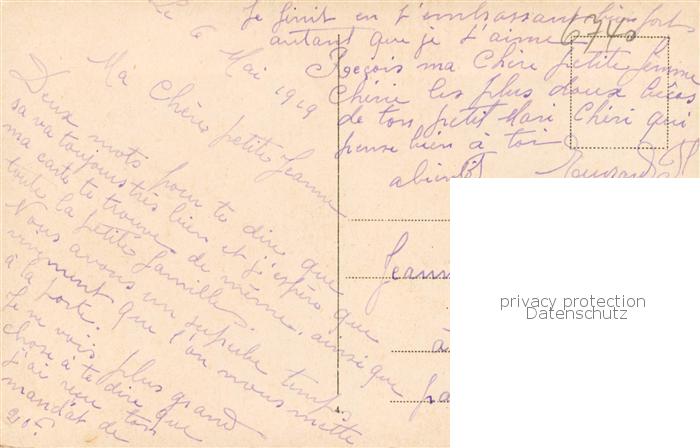 Le 6 Mai 1919
Ma Chère petite Jeanne
Deux mots pour te dire que
sa va toujours très bien et j'espère que
ma carte te trouve de même, ainsi que
toute la petite famille.
Nous avons un superbe temps
vivement que l'on nous mette
à la porte.
Je ne vois plus grand
chose à te dire que
j'ai reçu ton
mandat de
20f.
Je finit en t'embrassant bien fort
autant que je t'aime
Reçois ma Chère petite femme
Chérie les plus doux bécos
de ton petit Mari Chéri qui
pense bien à toi
abientôt
6740
Jeann
à
pa
privacy protection
Datenschutz